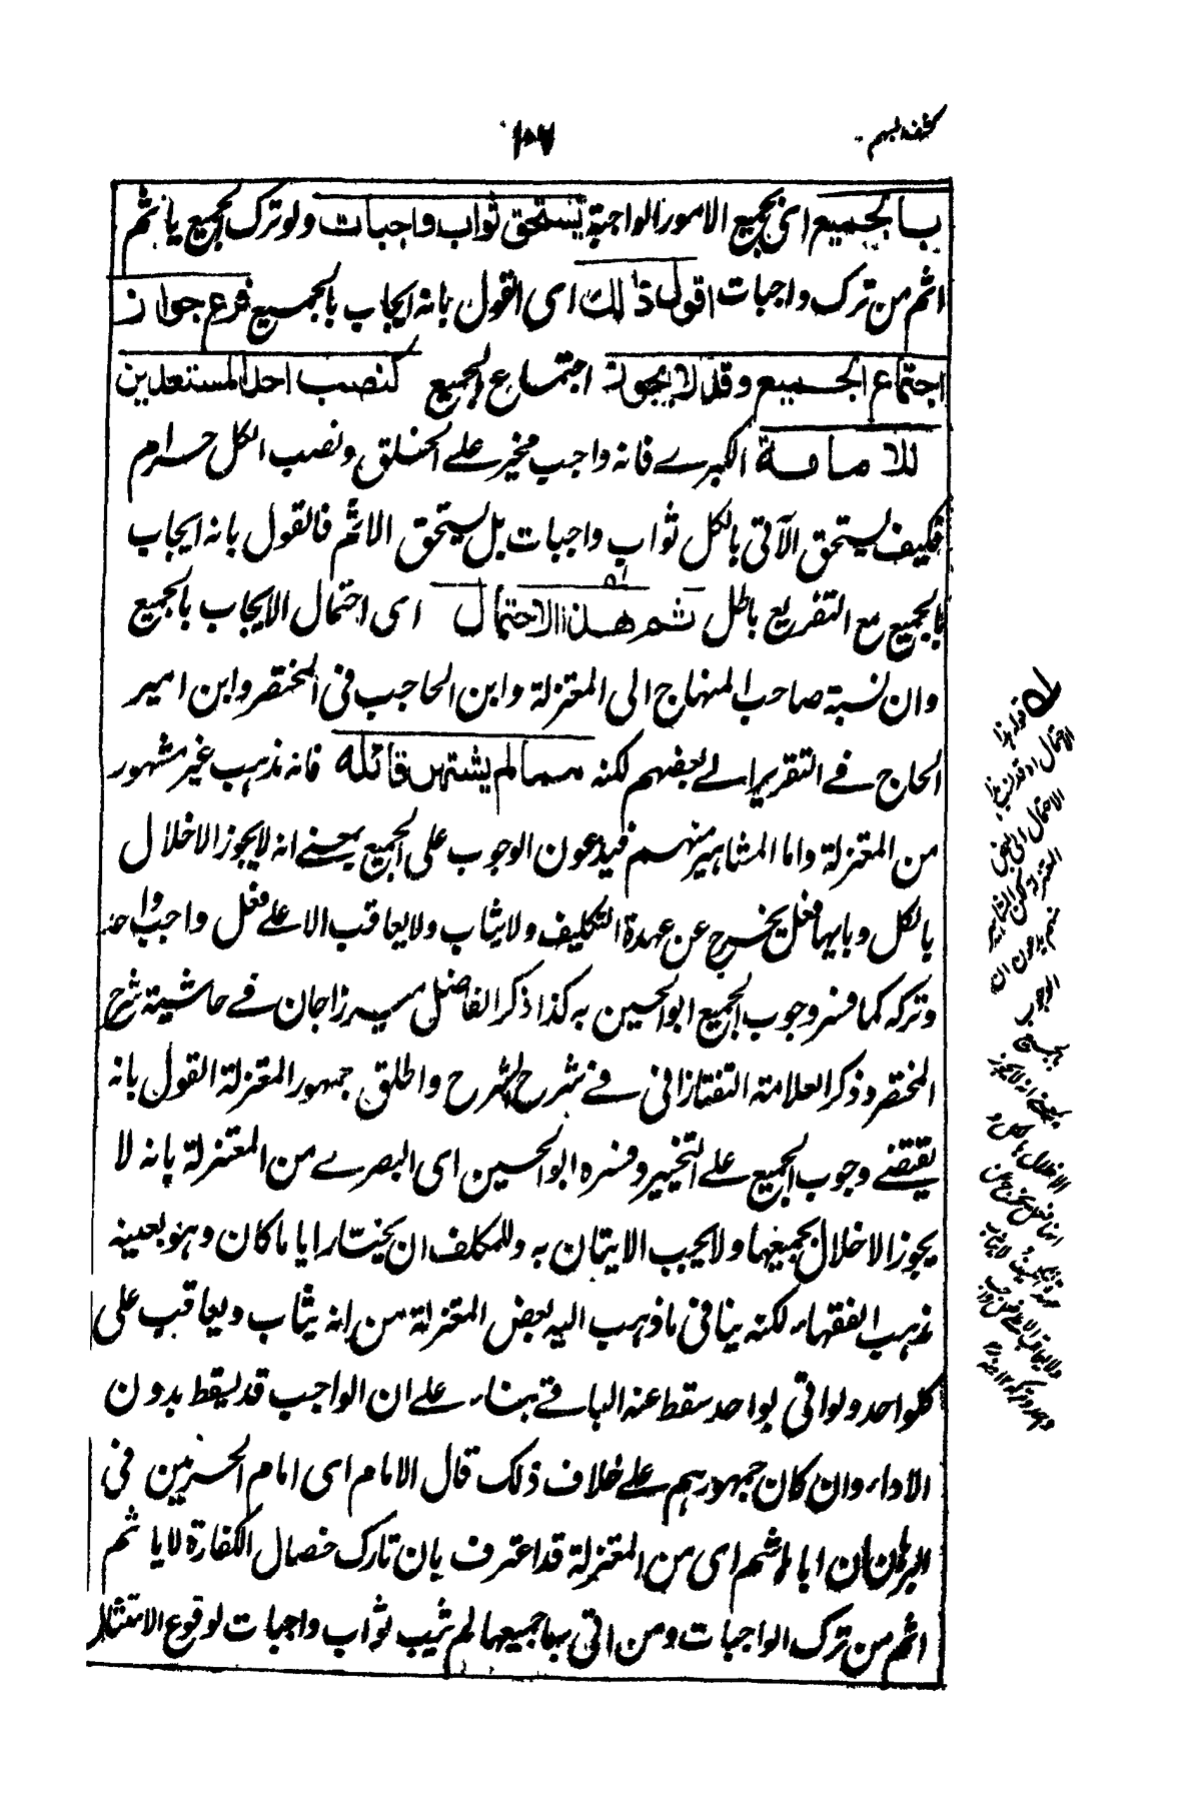 كشف المبهم
١٠٦
بالجميع اى بجميع الامور الواجبة يستحق ثواب واجبات ولو ترك الجميع ياثم
اثم من ترك واجبات اقول ذلك اى القول بانه ايجاب بالجميع فرع جواز
اجتماع الجميع وقد لا يجوز اجتماع الجميع كنصب احد المستعدين
للامامة الكبرے فانه واجب مخير علے الخلق ونصب الكل حرام
فكيف يستحق الآتى بالكل ثواب واجبات بل يستحق الاثم فالقول بانه ايجاب
بالجميع مع التفريع باطل ثم هذا الاحتمال اى احتمال الايجاب بالجميع
وان نسبة صاحب المنهاج الى المعتزلة وابن الحاجب فى المختصر وابن امير
الحاج فے التقرير الے بعضهم لكنه مما لم يشتهر قائله فانه مذهب غير مشهور
من المعتزلة واما المشاهير منهم فيدعون الوجوب على الجميع بمعنے انه لا يجوز الاخلال
بالكل وبايها فعل يخرج عن عهدة التكليف ولا يثاب ولا يعاقب الا علے فعل واجب واحد
وتركه كما فسر وجوب الجميع ابو الحسين به كذا ذكر الفاضل ميرزاجان فے حاشية شرح
المختصر وذكر العلامة التفتازانى فے شرح الشرح واطلق جمهور المعتزلة القول بانه
يقتضے وجوب الجميع علے التخيير وفسره ابو الحسين اى البصرے من المعتزلة بانه لا
يجوز الاخلال بجميعها ولا يجب الاتيان به وللمكلف ان يختار ايا ما كان وهو بعينه
مذهب الفقهاء لكنه ينافى ما ذهب اليه بعض المعتزلة من انه يثاب ويعاقب على
كل واحد ولو اتى بواحد سقط عنه الباقے بناء علے ان الواجب قد يسقط بدون
الاداء وان كان جمهورهم علے خلاف ذلك قال الامام اى امام الحرمين فى
البرهان ان ابا هاشم اى من المعتزلة قد اعترف بان تارك خصال الكفارة لا ياثم
اثم من ترك الواجبات ومن اتى بها جميعها لم يثب ثواب واجبات لوقوع الامتثال
قوله هذا
الاحتمال اه قد نسب هذا
الاحتمال الى بعض
المعتزلة لكن المشاهير
منهم يدعون ان
الوجوب
بالجميع
بمعنے انه لا يجوز
الاخلال بالكل و
ايها فعل يخرج عن
عهدة التكليف ولا يثاب
ولا يعاقب الا علے فعل واجب
واحد وتركه ١٢ منه